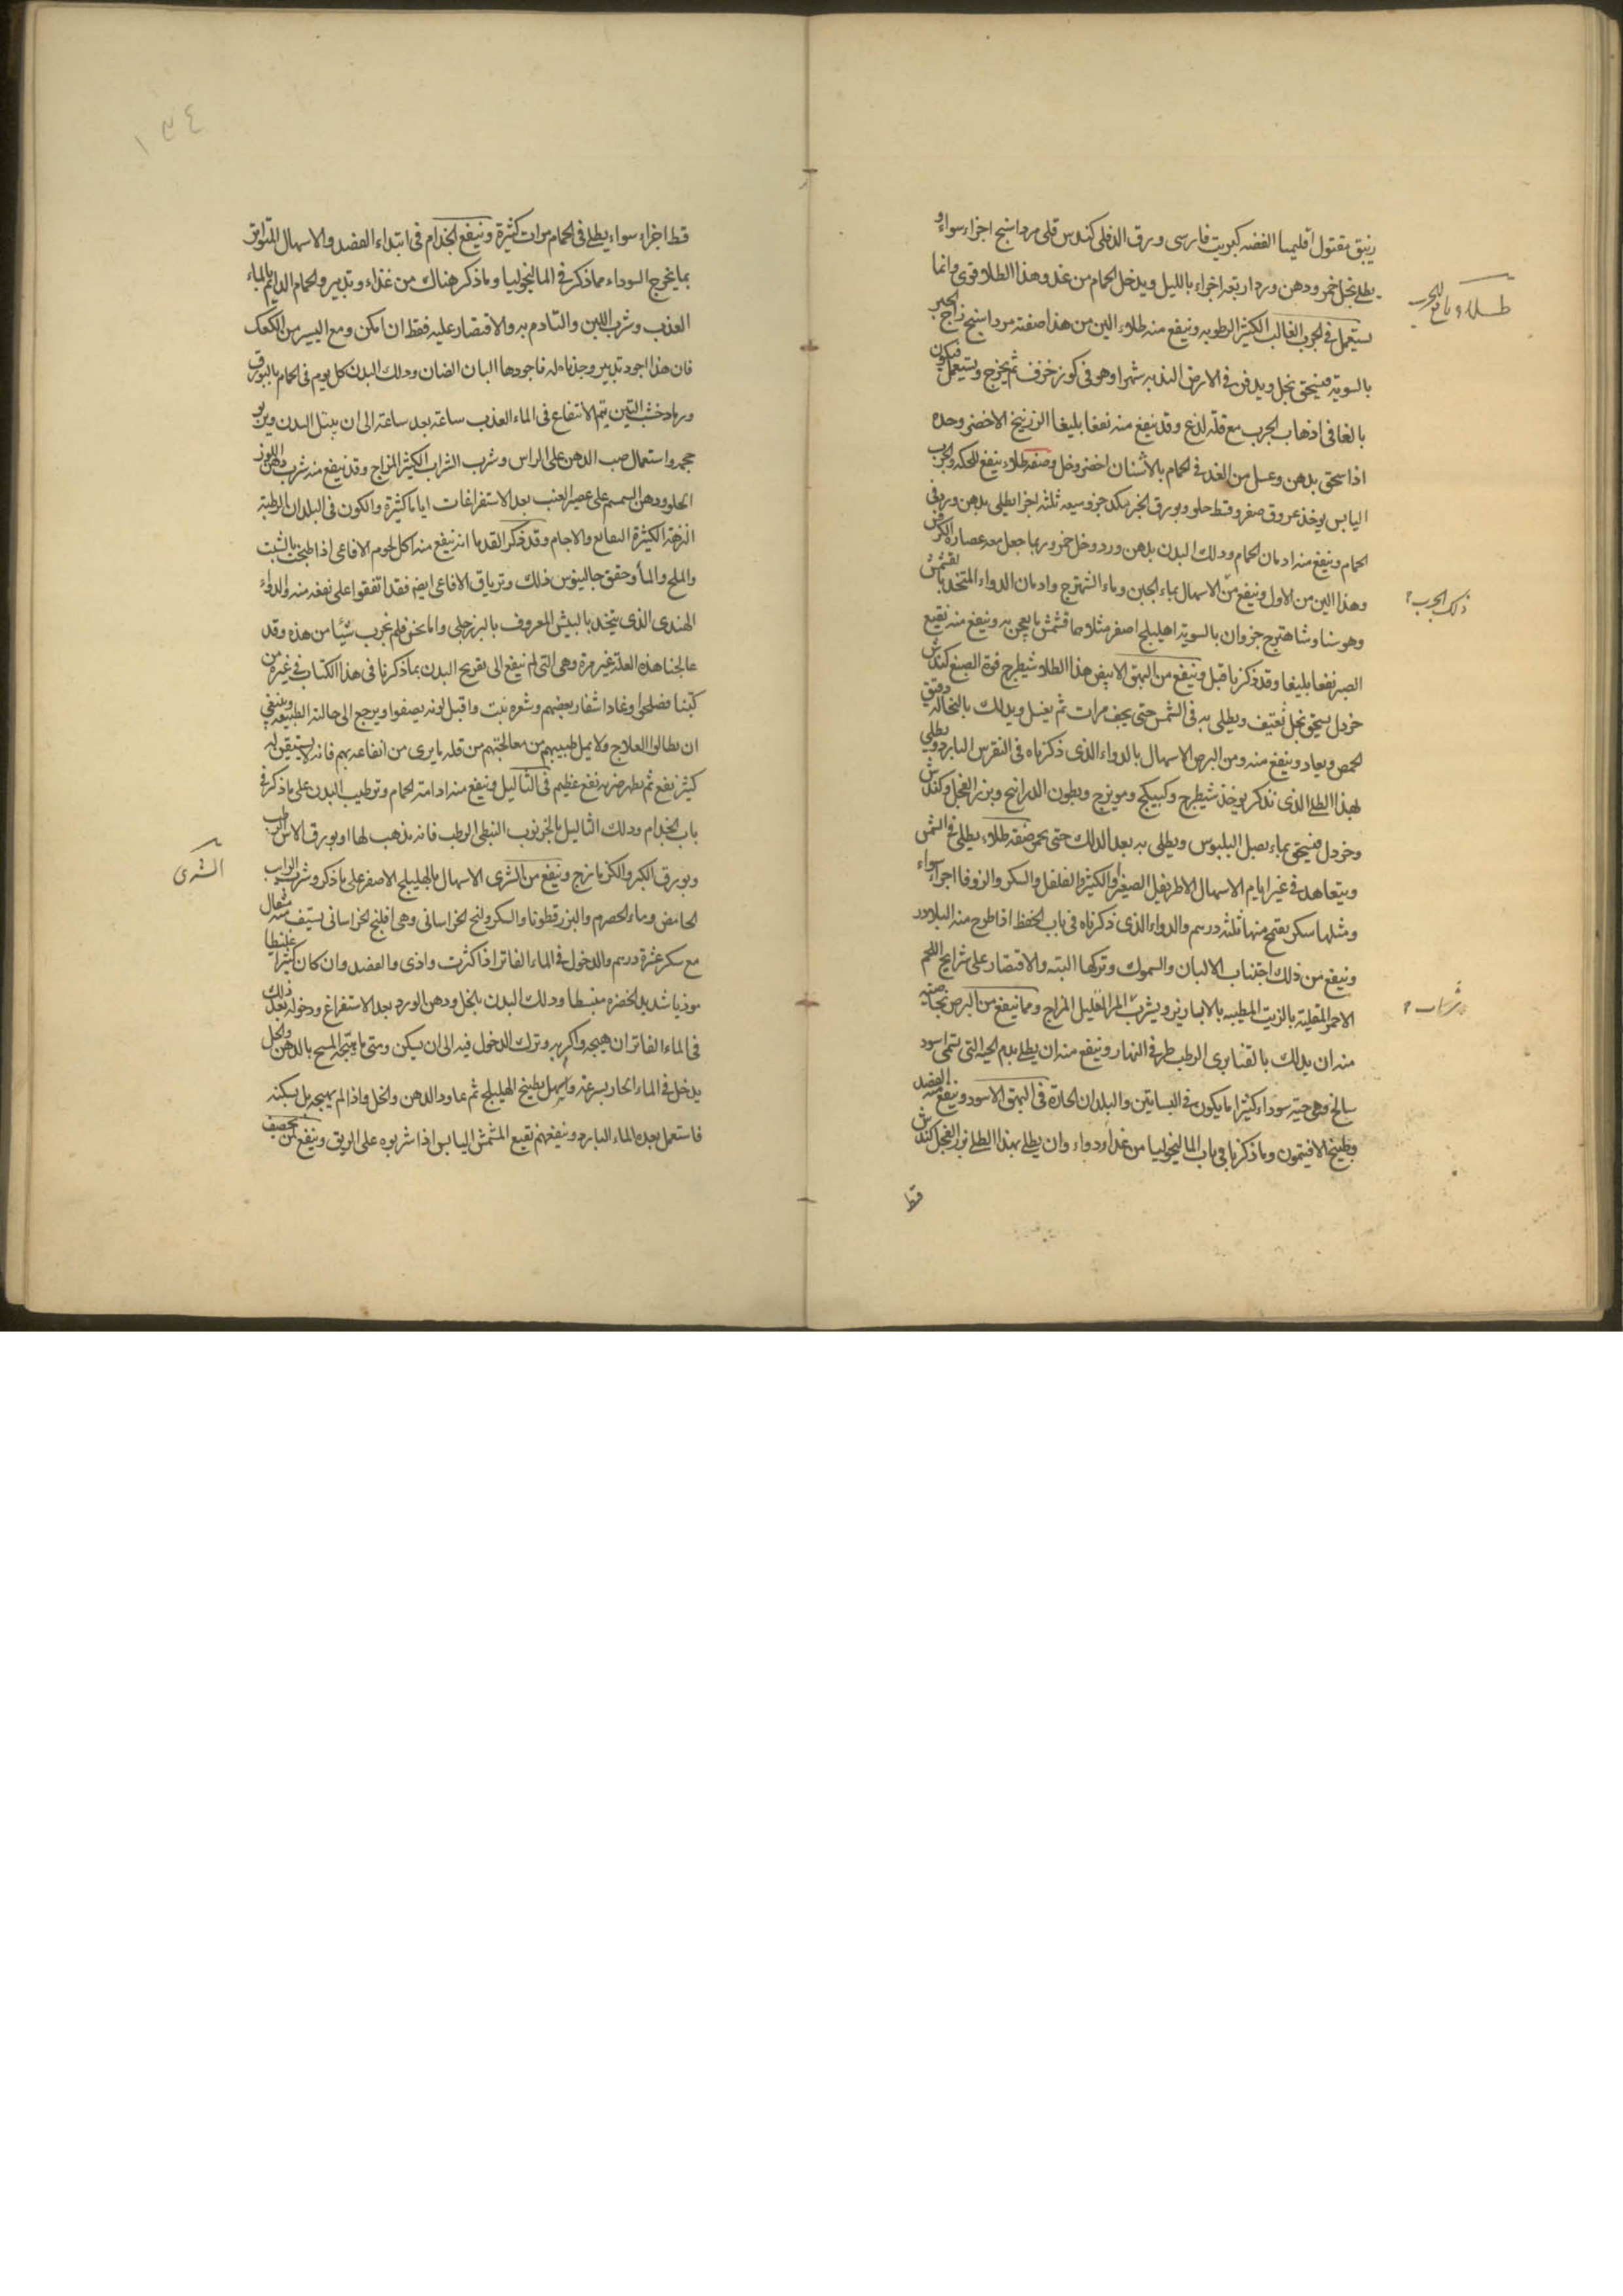 زيبق مقتول اقليميا الفضه كبريت فارسى ورق الدفلى كندس قلى مرداسنج اجزاء سواء و
يطلى بخل خمر ودهن ورد اربعة اجزاء بالليل ويدخل الحمام من غد وهذا الطلا قوى وانما
يستعمل فى الجرب الغالب الكثير الرطوبه وينفع منه طلاء الين من هذا صفته مرداسنج زاج الحبر
بالسويه فيسحق بخل ويدفن فى الارض النديه شهرا وهو فى كوز خزف ثم يخرج ويستعمل فيكون
بالغا فى اذهاب الجرب مع قلة لذع وقد ينفع منه نفعا بليغا الزرنيخ الاخضر وحده
اذا سحق بدهن وغسل من الغد فى الحمام بالاشنان اخضر وخل وصفه طلاء ينفع للحكه والجرب
اليابس يوخذ عروق صفر وقسط حلو وبورق الخبز مكد جزو ميعه ثلثه اجزا يطلى بدهن ورد فى
الحمام وينفع منه ادمان الحمام ودلك البدن بدهن ورد وخل خمر وربما جعل معه عصارة الكرفس
وهذا الين من الاول وينفع من الاسهال بماء الجبن وماء الشهترج وادمان الدواء المتخذ بالقشمش
وهو سنا وشاهترج جزوان بالسويه اهليلج اصفر مثلاهما قشمش ما يعجن به وينفع منه نقيع
الصبر نفعا بليغا وقد ذكرنا قبل وينفع من البهق الابيض هذا الطلا شيطرج فوة الصبغ كندش
خردل يسحق بخل ثقيف ويطلى به فى الشمس حتى يجف مرات ثم يغسل ويدلك بالنخاله دقيق
الحمص ويعاد وينفع منه ومن البرص الاسهال بالدواء الذى ذكرناه فى النقرس البارد ويطلى
بهذا الطلى الذى نذكر يوخذ شيطرج وكبيكج وميويزج وبطون الذرانح وبزر الفجل وكندش
وخردل فيسحق بماء بصل البلبوس ويطلى به بعد الدلك حتى يحمر صفه طلاء يطلى فى الشمس
ويتعاهد فى غير ايام الاسهال الاطريفل الصغير او الكثير والفلفل والسكر والزوفا اجزاء سواء
ومثلها سكر يقتمح منها ثلثه درسم والدواء الذى ذكرناه فى باب الحفظ اذا طرح منه البلادر
وينفع من ذلك اجتناب الالبان والسموك وتركها البته والاقتصار على شرايح اللحم
الاحمر المقليه بالزيت المطيبه بالابازير ويشرب المر القليل المزاج ومما ينفع من البرص بخاصيه
منه ان يدلك بالقنابرى الرطب طرفى النهار وينفع منه ان يطلى بدم الحيه التى تسمى اسود
سالخ وهى حيه سوداء كثيرا ما يكون فى البساتين والبلدان الحارة فى البهق الاسود وينفع منه الفصد
وطبيخ الافتيمون وما ذكرنا فى باب الماليخوليا من غذا ودواء وان يطلى بهذا الطلى بزر الفجل كندش
قسط
طلاء نافع للجرب
ذلك الجرب
شراب
١٣٤
قسط اجزاء سواء يطلى فى الحمام مرات كثيرة وينفع الجذام فى ابتداء الفصد والاسهال المتواتر
بما يخرج السوداء مما ذكر فى الماليخوليا وما ذكر هناك من غذاء وتدبير والحمام الدايم بالماء
العذب وشرب اللبن والتادم به والاقتصار عليه فقط ان امكن ومع اليسير من الكعك
فان هذا اجود تدبير وجدناه له فاجودها البان الضان ودلك البدن كل يوم فى الحمام بالبورق
ورماد خشب التين يتم الانتفاع فى الماء العذب ساعة بعد ساعة الى ان يبتل البدن ويربو
حجمه واستعمال صب الدهن على الراس وشرب الشراب الكثير المزاج وقد ينفع منه شرب دهن اللوز
الحلو ودهن السمسم على عصير العنب بعد الاستفراغات اياما كثيرة والكون فى البلدان الرطبة
النزهة الكثيرة البقايع والاجام وقد ذكر القدما انه ينفع منه اكل لحوم الافاعى اذا طبخت بالشبت
والملح والماء وحقق جالينوس ذلك وترياق الافاعى ايضا فقد اتفقوا على نفعه منه والدواء
الهندى الذى يتخذ بالبيش المعروف بالبزرجلى واما نحن فلم نجرب شيئا من هذه وقد
عالجنا هذه العلة غير مرة وهى التى لم ينفع الى تقريح البدن بما ذكرنا فى هذا الكتاب فى غيره من
كتبنا فصلحوا وعادا شفار بعضهم وشعره نبت واقبل لونه يصفوا ويرجع الى حالته الطبيعه وينبغى
ان يطالوا العلاج ولا يمل طبيبهم من معالجتهم من قله ما يرى من انتفاعه بهم فانه لا يستيقن له
كثير نفع ثم يظهر ضربه نفع عظيم فى الثاليل وينفع منه ادامة الحمام وترطيب البدن على ما ذكر فى
باب الجذام ودلك الثاليل بالخرنوب النبطى الرطب فانه يذهب لها او بورق الاس الرطب
وبورق الكبر والكزمازج وينفع من الشرى الاسهال بالهليلج الاصفر على ما ذكر وشرب الرايب
الحامض وماء الحصرم والبزر قطونا والسكر ولنج الخراسانى وهى افلنج الخراسانى يستف منه مثقال
مع سكر عشرة درسم والدخول فى الماء الفاتر اذا كثرت واذى والفصد وان كان كثيرا غليظا
موذيا شديد الحضره منبسطا ودلك البدن بالخل ودهن الورد بعد الاستفراغ ودخوله بعد ذلك
فى الماء الفاتر ان هيجه واكربه وترك الدخول فيه الى ان يسكن ومتى ما هيجه المسح بالدهن والخل
يدخل فى الماء الحار بسرعه واسهل بطبيخ الهليلج ثم عاود الدهن والخل واذا لم يهيجه بل يسكنه
فاستعمل بعده الماء البارد وينفعهم نقيع المشمش اليابس اذا شربوه على الريق وينفع من الحصف
الشرى